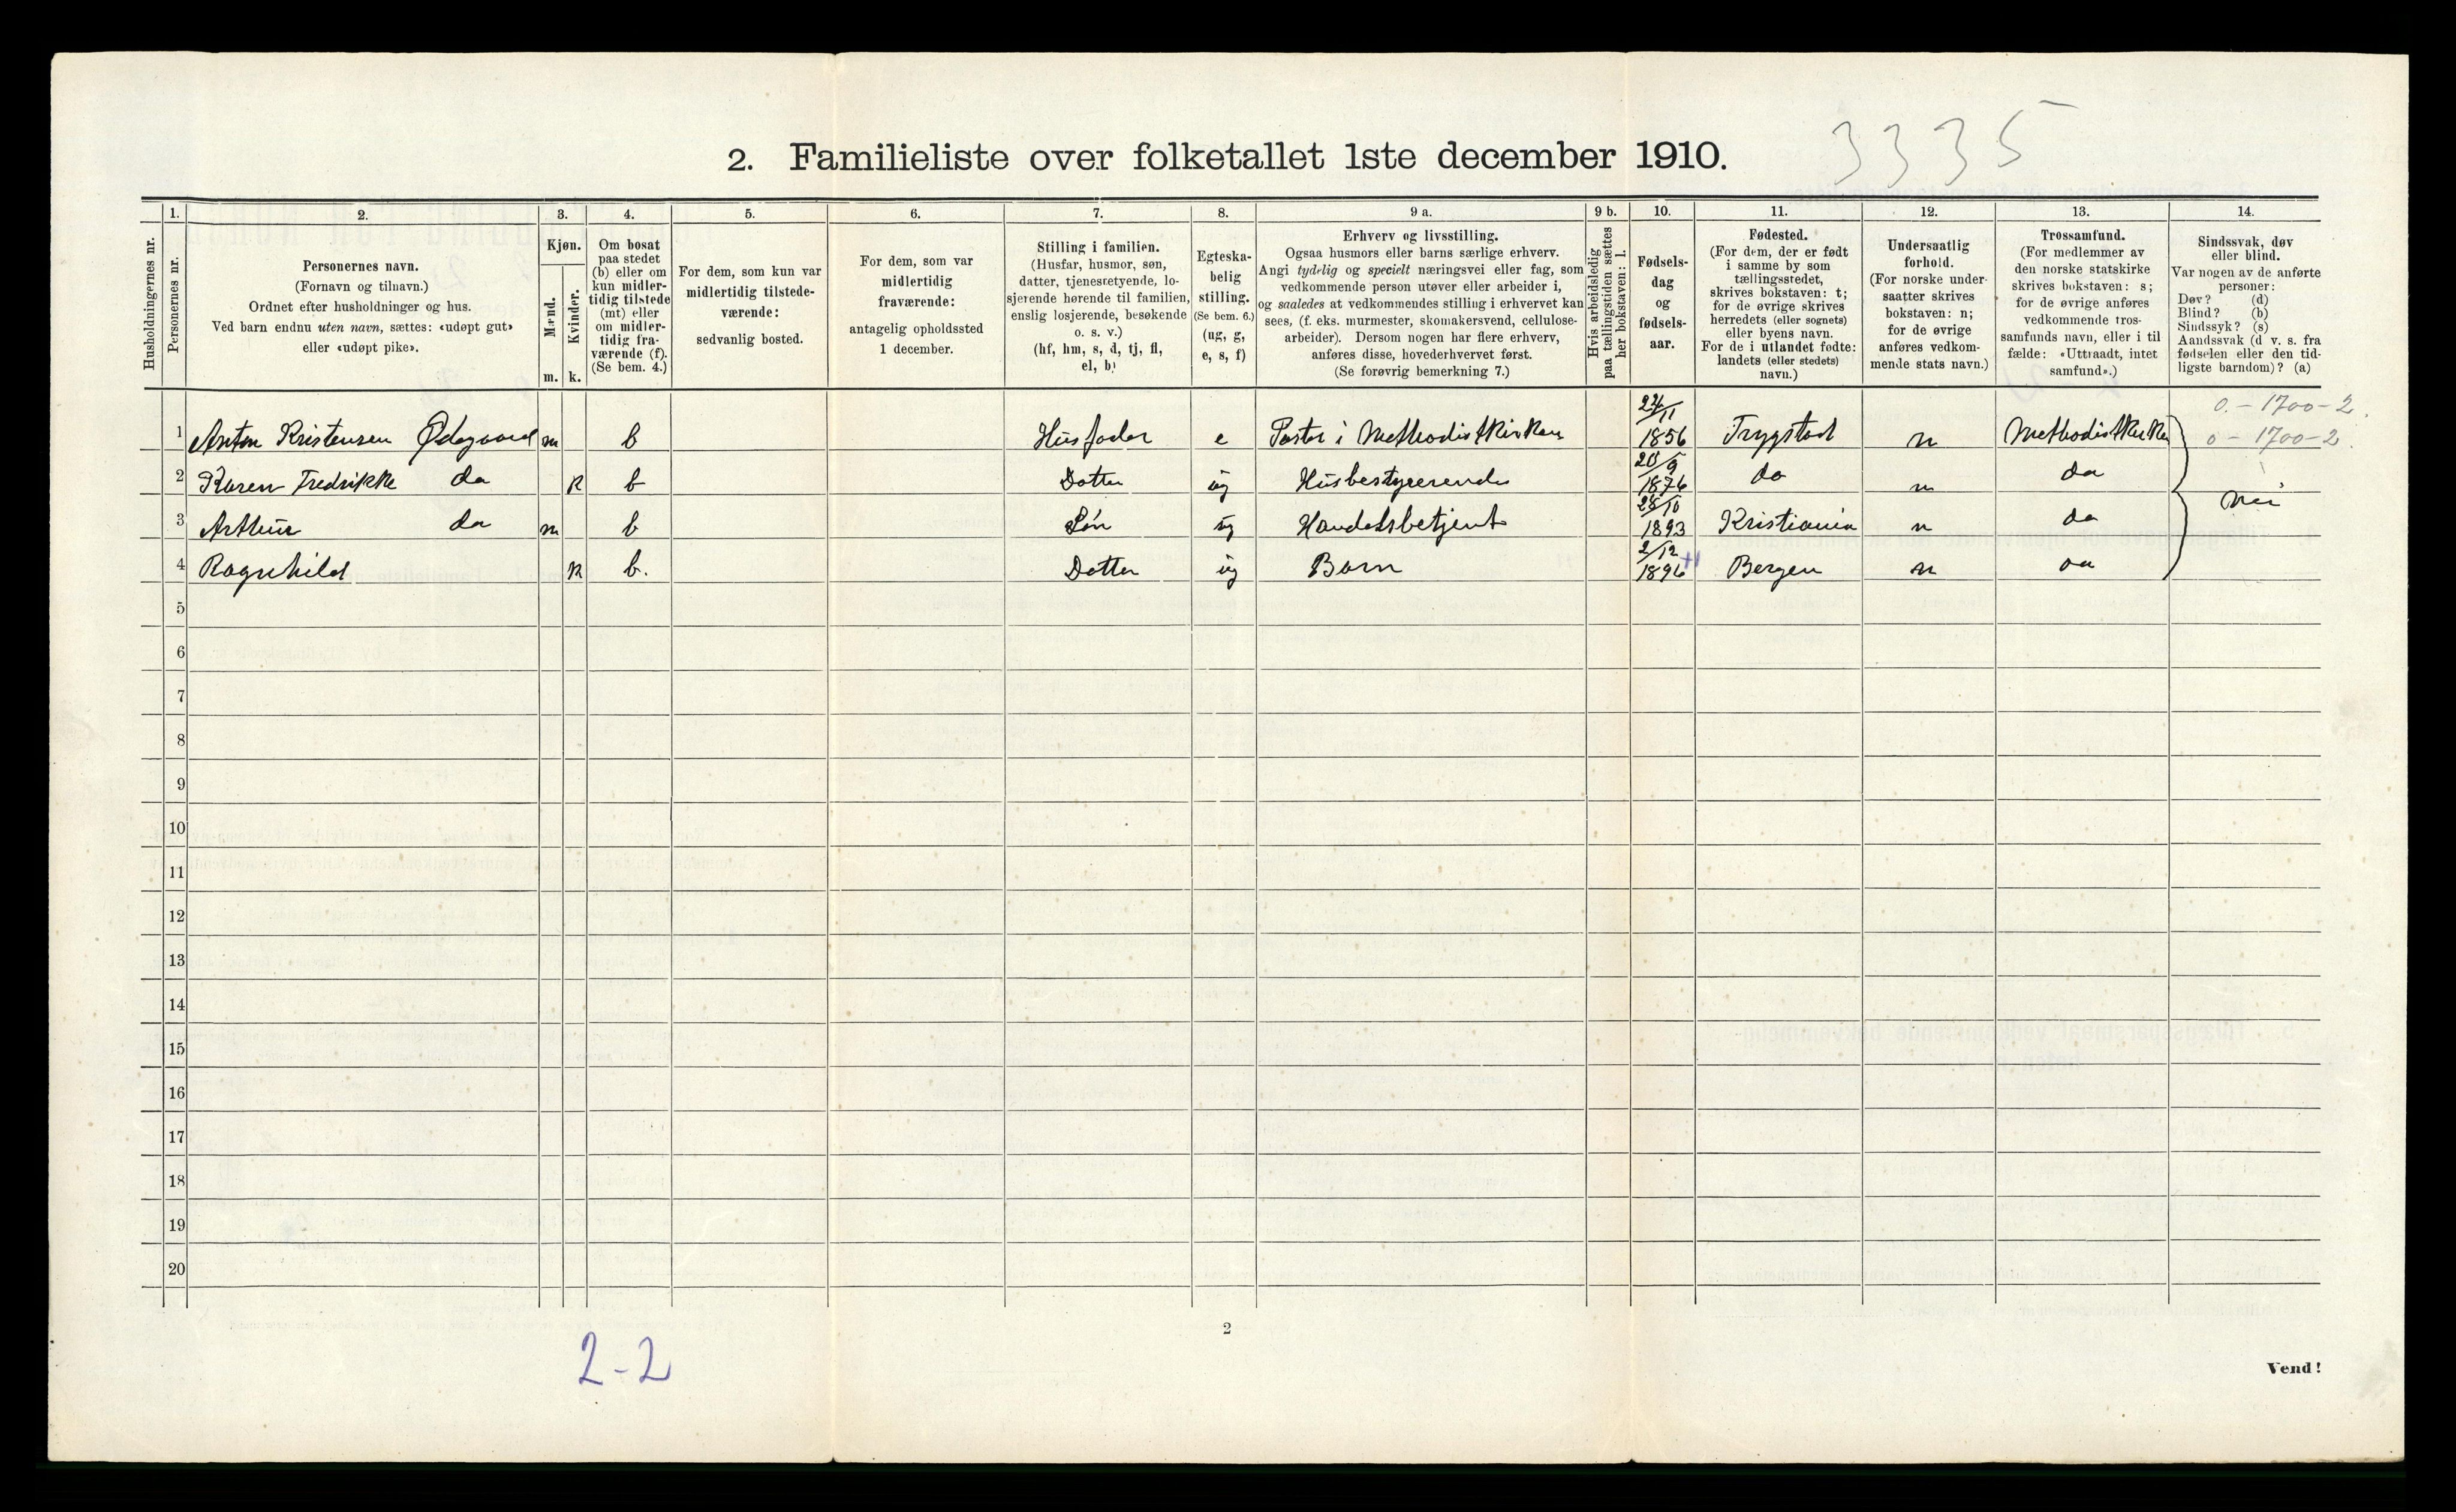 3335
2. Familieliste over folketallet 1ste december 1910.
Husholdningernes nr.
1.
Personernes nr.
2.
Personernes navn.
(Fornavn og tilnavn.)
Ordnet efter husholdninger og hus.
Ved barn endnu uten navn, sættes: «udøpt gut»
eller «udøpt pike».
3.
Kjøn.
Mænd.
m.
Kvinder.
k.
4.
Om bosat
paa stedet
(b) eller om
kun midler-
tidig tilstede
(mt) eller
om midler-
tidig fra-
værende (f).
(Se bem. 4.)
5.
For dem, som kun var
midlertidig tilstede-
værende:
sedvanlig bosted.
6.
For dem, som var
midlertidig
fraværende:
antagelig opholdssted
1 december.
7.
Stilling i familien.
(Husfar, husmor, søn,
datter, tjenestetyende, lo-
sjerende hørende til familien,
enslig losjerende, besøkende
o. s. v.)
(hf, hm, s, d, tj, fl,
el, b)
8.
Egteska-
belig
stilling.
(Se bem. 6.)
(ug, g,
e, s, f)
9 a.
Erhverv og livsstilling.
Ogsaa husmors eller barns særlige erhverv.
Angi tydelig og specielt næringsvei eller fag, som
vedkommende person utøver eller arbeider i,
og saaledes at vedkommendes stilling i erhvervet kan
sees, (f. eks. murmester, skomakersvend, cellulose-
arbeider). Dersom nogen har flere erhverv,
anføres disse, hovederhvervet først.
(Se forøvrig bemerkning 7.)
9 b.
Hvis arbeidsledig
paa tællingstiden sættes
her bokstaven: l.
10.
Fødsels-
dag
og
fødsels-
aar.
11.
Fødested.
(For dem, der er født
i samme by som
tællingsstedet,
skrives bokstaven: t;
for de øvrige skrives
herredets (eller sognets)
eller byens navn.
For de i utlandet fødte:
landets (eller stedets)
navn.)
12.
Undersaatlig
forhold.
(For norske under-
saatter skrives
bokstaven: n;
for de øvrige
anføres vedkom-
mende stats navn.)
13.
Trossamfund.
(For medlemmer av
den norske statskirke
skrives bokstaven: s;
for de øvrige anføres
vedkommende tros-
samfunds navn, eller i til-
fælde: «Uttraadt, intet
samfund».)
14.
Sindssvak, døv
eller blind.
Var nogen av de anførte
personer:
Døv? (d)
Blind? (b)
Sindssyk? (s)
Aandssvak (d. v. s. fra
fødselen eller den tid-
ligste barndom)? (a)
0. - 1700 - 2.
1 Anton Kristensen Ødegaard m b Husfader e Pastor i Methodistkirken 22/11 1856 Trygstad n Methodistkirken 0 - 1700 - 2.
2 Karen Fredrikke do k b Dotter ug Husbestyrerende 20/9 1876 do n do
3 Arthur do m b Søn ug Handelsbetjent 28/10 1893 Kristiania n do nei
4 Ragnhild k b. Dotter ug Barn 2/12 1896 Bergen n do
5
6
7
8
9
10
11
12
13
14
15
16
17
18
19
20
2
2-2
Vend!